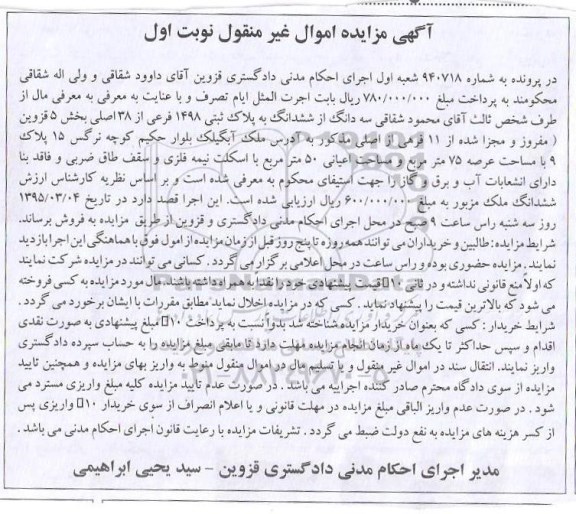 آگهی مزایده اموال غیر منقول نوبت اول
در پرونده به شماره ۹۴۰۷۱۸ شعبه اول اجرای احکام مدنی دادگستری قزوین آقای داوود شقاقی و ولی اله شقاقی
محکومند به پرداخت مبلغ ۷۸۰/۰۰۰/۰۰۰ ریال بابت اجرت المثل ایام تصرف و با عنایت به معرفی به معرفی مال از
طرف شخص ثالث آقای محمود شقاقی سه دانگ از ششدانگ به پلاک ثبتی ۱۴۹۸ فرعی از ۳۸اصلی بخش ۵ قزوین
( مفروز و مجزا شده از ۱۱ فرعی از اصلی مذکور به آدرس ملک آبگیلک بلوار حکیم کوچه نرگس ۱۵ پلاک
۹ با مساحت عرصه ۷۵ متر مربع و مساحت اعیانی ۵۰ متر مربع با اسکلت نیمه فلزی و سقف طاق ضربی و فاقد بنا
دارای انشعابات آب و برق و گاز را جهت استیفای محکوم به معرفی شده است و بر اساس نظریه کارشناس ارزش
ششدانگ ملک مزبور به مبلغ ۶۰۰/۰۰۰/۰۰۰ ریال ارزیابی شده است. این اجرا قصد دارد در تاریخ ۱۳۹۵/۰۳/۰۴
روز سه شنبه راس ساعت ۹ صبح در محل اجرای احکام مدنی دادگستری و قزوین از طریق مزایده به فروش برساند.
شرایط مزایده: طالبین و خریداران می توانند همه روزه تا پنج روز قبل از زمان مزایده از امول فوق با هماهنگی این اجرا بازدید
نمایند . مزایده حضوری بوده و راس ساعت در محل اعلامی برگزار می گردد . کسانی می توانند در مزایده شرکت نمایند
که اولاً منع قانونی نداشته و در ثانی ۱۰ قیمت پیشنهادی خود را نقدا به همراه داشته باشد. مال مورد مزایده به کسی فروخته
می شود که بالاترین قیمت را پیشنهاد نماید . کسی که در مزایده اخلال نماید مطابق مقررات با ایشان برخورد می گردد .
شرایط خریدار : کسی که بعنوان خریدار مزایده شناخته شد بدوا نسبت به پرداخت ۱۰ مبلغ پیشنهادی به صورت نقدی
اقدام و سپس حداکثر تا یک ماه از زمان انجام مزایده مهلت دارد تا مابقی مبلغ مزایده را به حساب سپرده دادگستری
واریز نمایند. انتقال سند در اموال غیر منقول و یا تسلیم مال در اموال منقول منوط به واریز بهای مزایده و همچنین تایید
مزایده از سوی دادگاه محترم صادر کننده اجراییه می باشد . در صورت عدم تأیید مزایده کلیه مبلغ واریزی مسترد می
شود . در صورت عدم واریز الباقی مبلغ مزایده در مهلت قانونی و یا اعلام انصراف از سوی خریدار ۱۰ واریزی پس
از کسر هزینه های مزایده به نفع دولت ضبط می گردد . تشریفات مزایده با رعایت قانون اجرای احکام مدنی می باشد .
مدیر اجرای احکام مدنی دادگستری قزوین - سید یحیی ابراهیمی